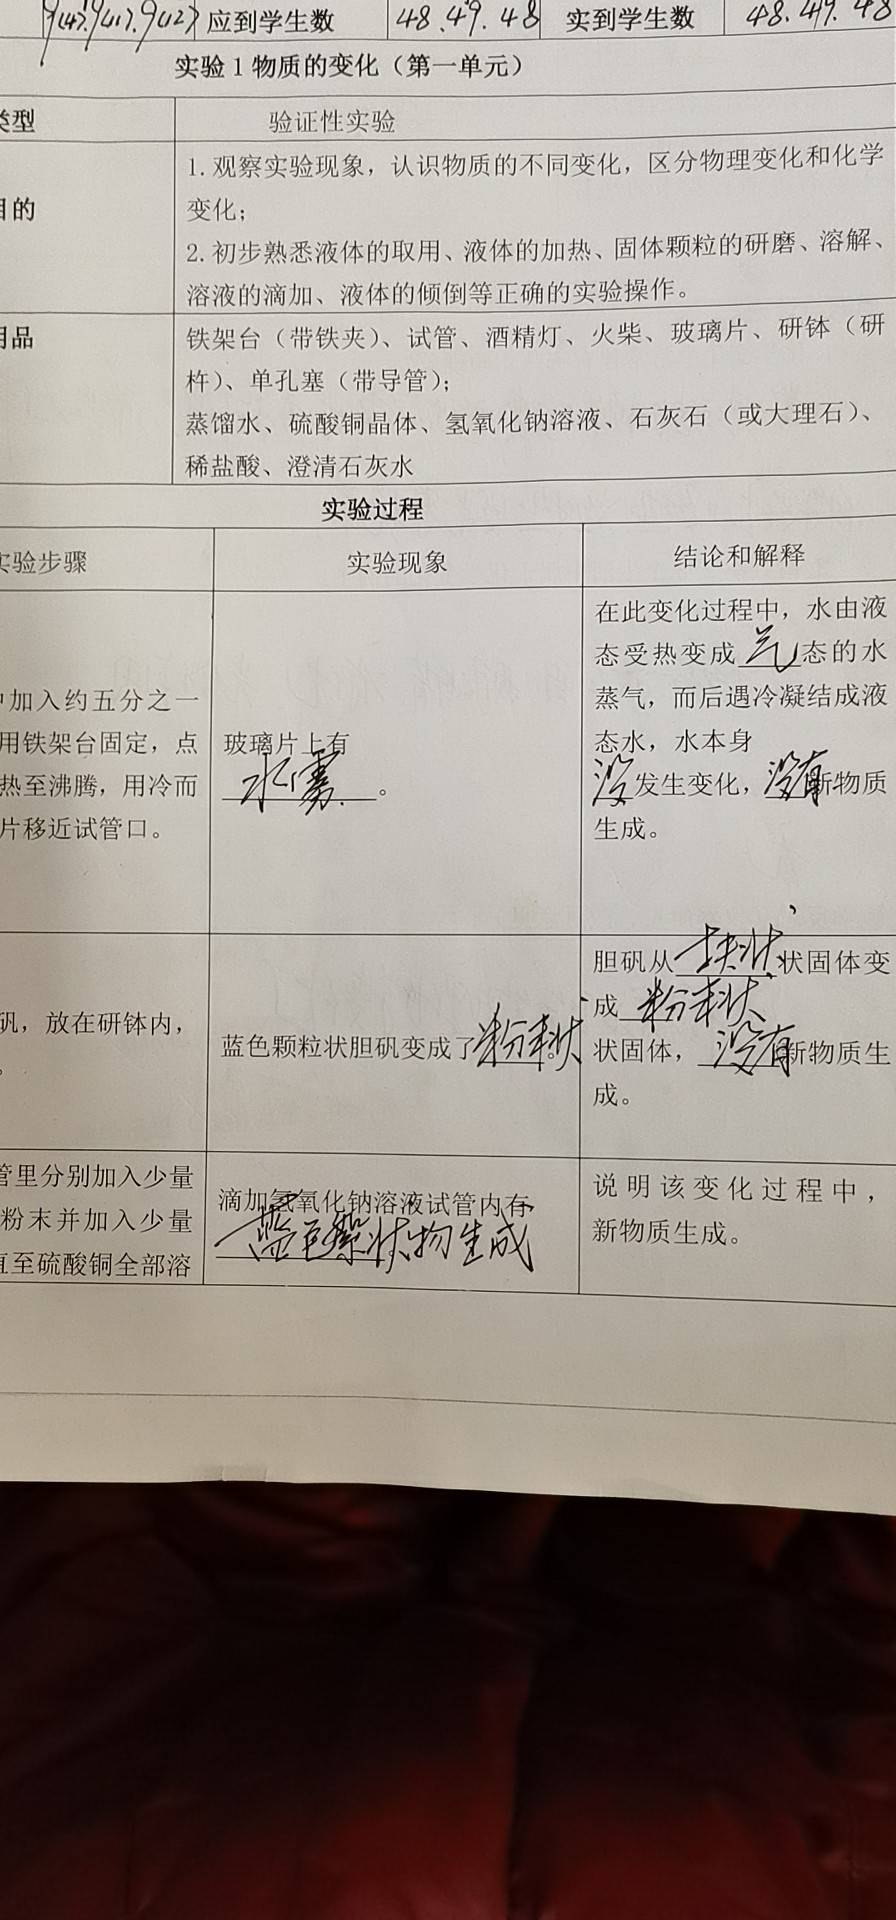 9(4)7.9(4)7.9(12)7 应到学生数 48.49.48 实到学生数 48.49.48
实验1 物质的变化（第一单元）
类型 验证性实验
目的 1.观察实验现象，认识物质的不同变化，区分物理变化和化学
变化；
2.初步熟悉液体的取用、液体的加热、固体颗粒的研磨、溶解、
溶液的滴加、液体的倾倒等正确的实验操作。
用品 铁架台（带铁夹）、试管、酒精灯、火柴、玻璃片、研钵（研
杵）、单孔塞（带导管）；
蒸馏水、硫酸铜晶体、氢氧化钠溶液、石灰石（或大理石）、
稀盐酸、澄清石灰水
实验过程
实验步骤 实验现象 结论和解释
中加入约五分之一
用铁架台固定，点
热至沸腾，用冷而
片移近试管口。
玻璃片上有
水雾。
在此变化过程中，水由液
态受热变成气态的水
蒸气，而后遇冷凝结成液
态水，水本身
没发生变化，没有新物质
生成。
矾，放在研钵内，
。
蓝色颗粒状胆矾变成了粉末状。
胆矾从块状状固体变
成粉末状
状固体，没有新物质生
成。
管里分别加入少量
粉末并加入少量
直至硫酸铜全部溶
滴加氢氧化钠溶液试管内有
蓝色絮状物生成
说明该变化过程中，
新物质生成。